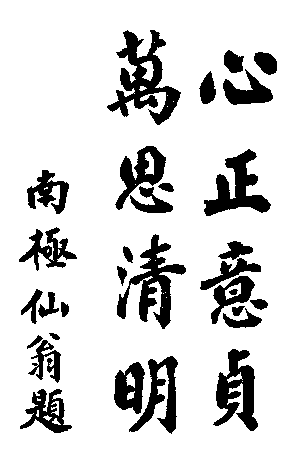 心正意貞
萬思清明
南極仙翁題